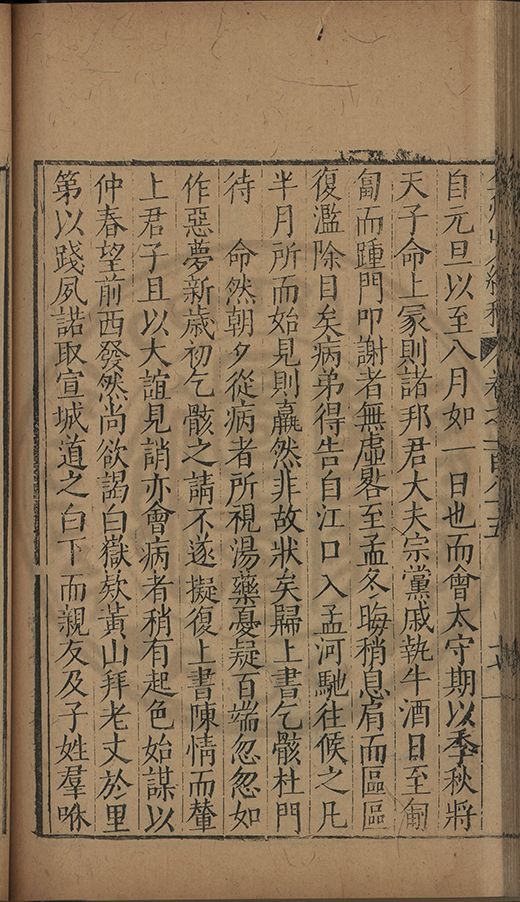 自元旦以至八月如一日也而會太守期以季秋將
天子命上冢則諸邦君大夫宗黨戚執牛酒日至匍
匐而踵門叩謝者無虛晷至孟冬晦稍息肩而區區
復濫除目矣病弟得告自江口入孟河馳往候之凡
半月所而始見則羸然非故狀矣歸上書乞骸杜門
待 命然朝夕從病者所視湯藥憂疑百端忽忽如
作惡夢新歲初乞骸之請不遂擬復上書陳情而輦
上君子且以大誼見誚亦會病者稍有起色始謀以
仲春望前西發然尚欲謁白嶽欵黃山拜老丈於里
第以踐夙諾取宣城道之白下而親友及子姓羣咻